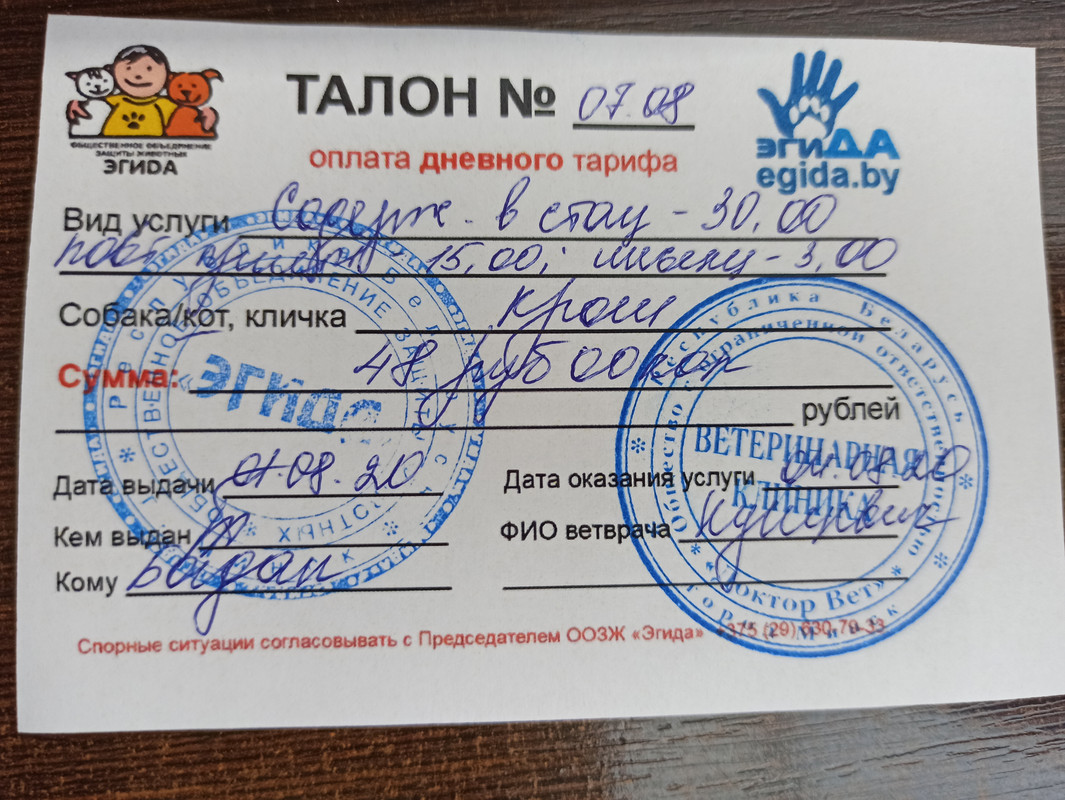 ТАЛОН № 07.08
оплата дневного тарифа
ОБЩЕСТВЕННОЕ ОБЪЕДИНЕНИЕ
ЗАЩИТЫ ЖИВОТНЫХ
ЭГИДА
эгиДА
egida.by
Вид услуги Содерж. в стац - 30,00
15,00; - 3,00
Собака/кот, кличка Крош
Сумма: 48 руб 00 коп
рублей
Дата выдачи 01.08.20
Дата оказания услуги 01.08.20
Кем выдан
ФИО ветврача
Кому Богдан
Спорные ситуации согласовывать с Председателем ООЗЖ «Эгида» +375 (29) 630-70-33
Республика Беларусь
ОБЩЕСТВЕННОЕ ОБЪЕДИНЕНИЕ ЗАЩИТЫ ЖИВОТНЫХ
«ЭГИДА»
Республика Беларусь
Общество с ограниченной ответственностью
ВЕТЕРИНАРНАЯ
КЛИНИКА
«Доктор Вет»
город Минск